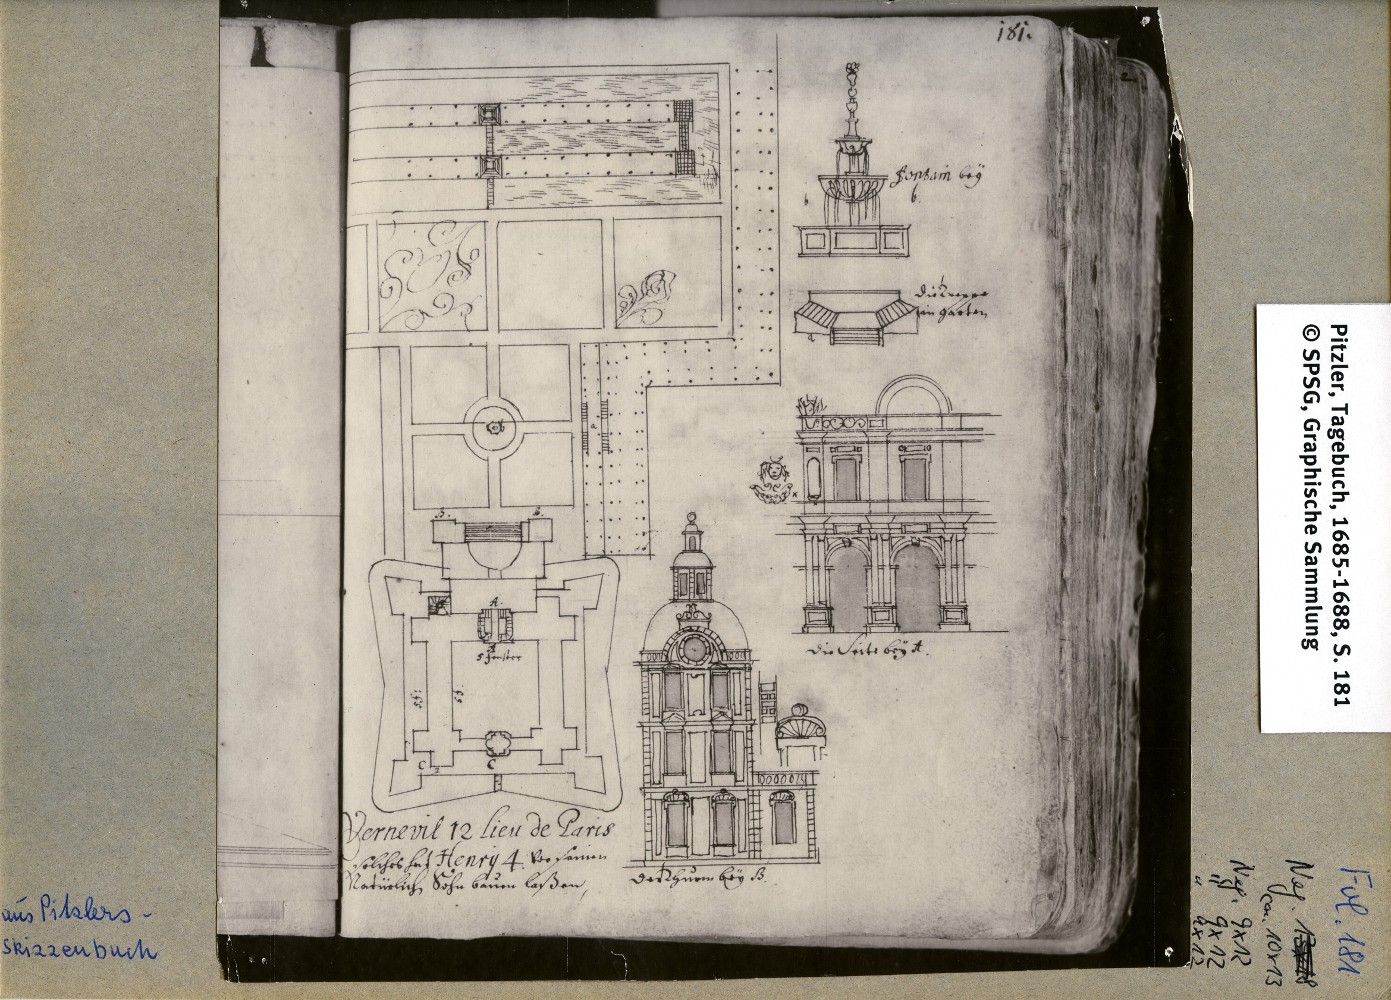 181.
Fontain beÿ
b.
b
die Treppe
im garten
a
B.
b.
A.
A
5 fenster
5 f:
5 f:
C
C
x
Die Seite beÿ A.
Vernevil 12 lieu de Paris
solches hat Henry 4. vor seinen
Natürlich Sohn bauen laßen,
Der Thurm beÿ B.
Pitzler, Tagebuch, 1685-1688, S. 181
© SPSG, Graphische Sammlung
aus Pitzlers-
skizzenbuch
Fol. 181
Neg.
ca. 10x13
Neg. 9x12
" 9x12
" 9x12